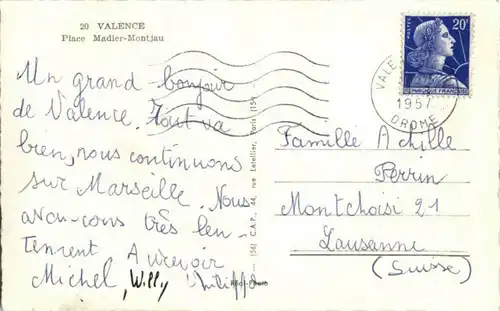 20 VALENCE
Place Madier-Montjau
Un grand bonjour
de Valence. Tout va
bien, nous continuons
sur Marseille. Nous
avan-cons très len-
tement Aurevoir
Michel, Willy Philippe
(56) C.A.P., 44, rue Letellier, Paris (15e)
POSTES
20F
REPUBLIQUE FRANÇAISE
VALE
1957
DROME
Famille Achille
Perrin
Montchoisi 21
Lausanne
(Suisse)